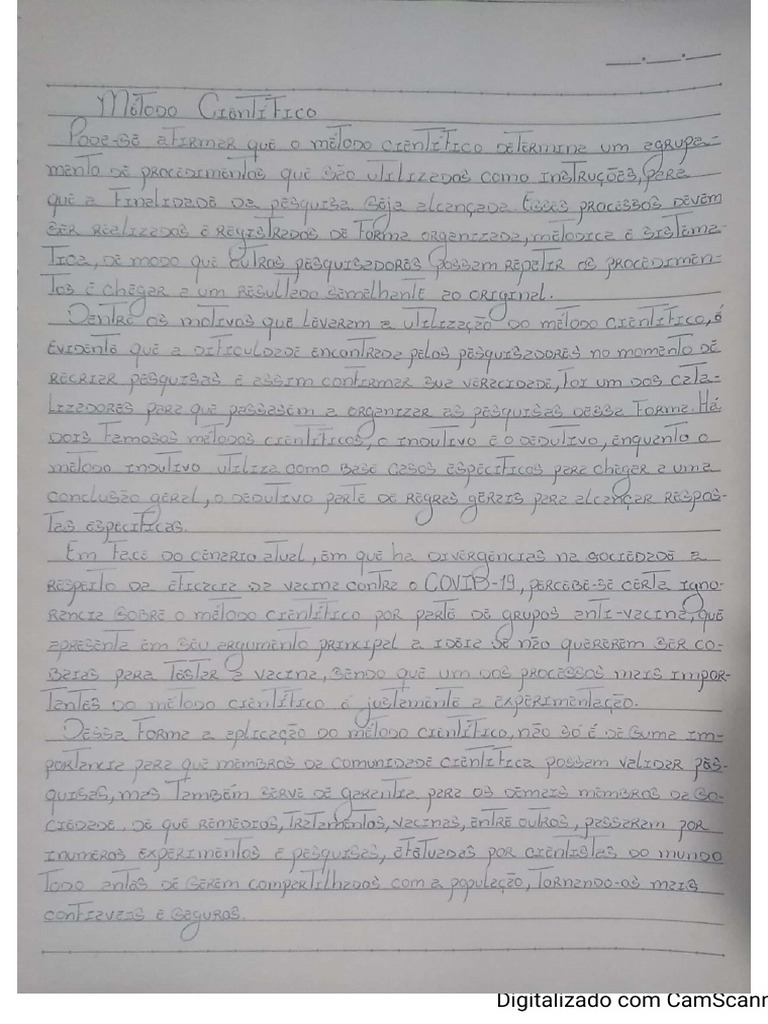 Método Científico
Pode-se afirmar que o método científico determina um agrupa-
mento de procedimentos que são utilizados como instruções, para
que a finalidade da pesquisa seja alcançada. Esses processos devem
ser realizados e registrados de forma organizada, metódica e sistema-
tica, de modo que outros pesquisadores possam repetir os procedimen-
tos e chegar a um resultado semelhante ao original.
Dentre os motivos que levaram a utilização do método científico, é
evidente que a dificuldade encontrada pelos pesquisadores no momento de
recriar pesquisas e assim confirmar sua veracidade, foi um dos cata-
lizadores para que passassem a organizar as pesquisas dessa forma. Há
dois famosos métodos científicos, o indutivo e o dedutivo, enquanto o
método indutivo utiliza como base casos específicos para chegar a uma
conclusão geral, o dedutivo parte de regras gerais para alcançar respos-
tas específicas.
Em face do cenário atual, em que ha divergências na sociedade a
respeito da eficacia da vacina contra o COVID-19, percebe-se certa igno-
rancia sobre o método científico por parte de grupos anti-vacina, que
apresenta em seu argumento principal a idéia se não quererem ser co-
baias para testar a vacina, sendo que um dos processos mais impor-
tantes do método científico é justamente a experimentação.
Dessa forma a aplicação do método científico, não só é de suma im-
portancia para que membros da comunidade científica possam validar pes-
quisas, mas também serve de garantia para os demais membros da so-
ciedade, de que remédios, tratamentos, vacinas, entre outros, passaram por
inumeros experimentos e pesquisas, efetuadas por cientistas do mundo
todo antes de serem compartilhados com a população, tornando-os mais
confiaveis e seguros.
Digitalizado com CamScann